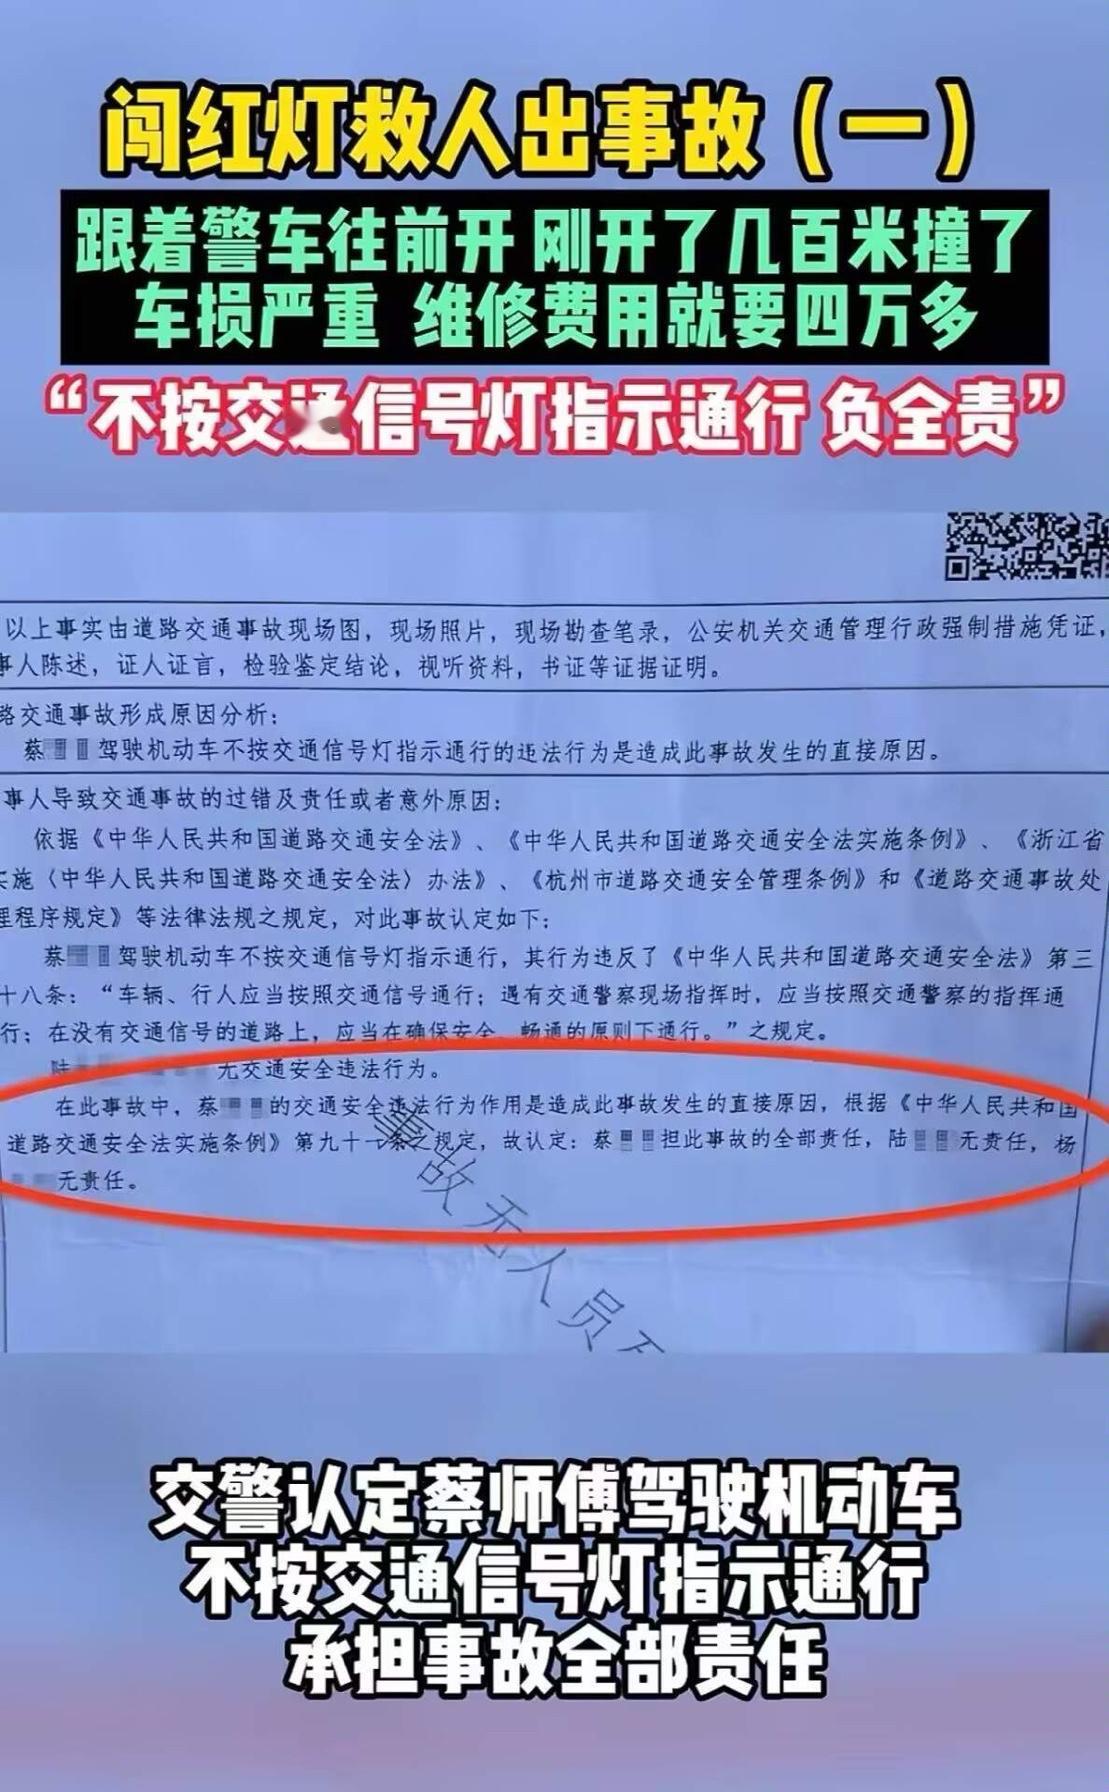 闯红灯救人出事故（一）
跟着警车往前开 刚开了几百米撞了
车损严重 维修费用就要四万多
“不按交通信号灯指示通行 负全责”
以上事实由道路交通事故现场图，现场照片，现场勘查笔录，公安机关交通管理行政强制措施凭证，
事人陈述，证人证言，检验鉴定结论，视听资料，书证等证据证明。
路交通事故形成原因分析：
蔡 驾驶机动车不按交通信号灯指示通行的违法行为是造成此事故发生的直接原因。
事人导致交通事故的过错及责任或者意外原因：
依据《中华人民共和国道路交通安全法》、《中华人民共和国道路交通安全法实施条例》、《浙江省
实施〈中华人民共和国道路交通安全法〉办法》、《杭州市道路交通安全管理条例》和《道路交通事故处
理程序规定》等法律法规之规定，对此事故认定如下：
蔡 驾驶机动车不按交通信号灯指示通行，其行为违反了《中华人民共和国道路交通安全法》第三
十八条：“车辆、行人应当按照交通信号通行；遇有交通警察现场指挥时，应当按照交通警察的指挥通
行；在没有交通信号的道路上，应当在确保安全、畅通的原则下通行。”之规定。
陆 无交通安全违法行为。
在此事故中，蔡 的交通安全违法行为作用是造成此事故发生的直接原因，根据《中华人民共和国
道路交通安全法实施条例》第九十一条之规定，故认定：蔡 担此事故的全部责任，陆 无责任，杨
无责任。
事故无人员
交警认定蔡师傅驾驶机动车
不按交通信号灯指示通行
承担事故全部责任